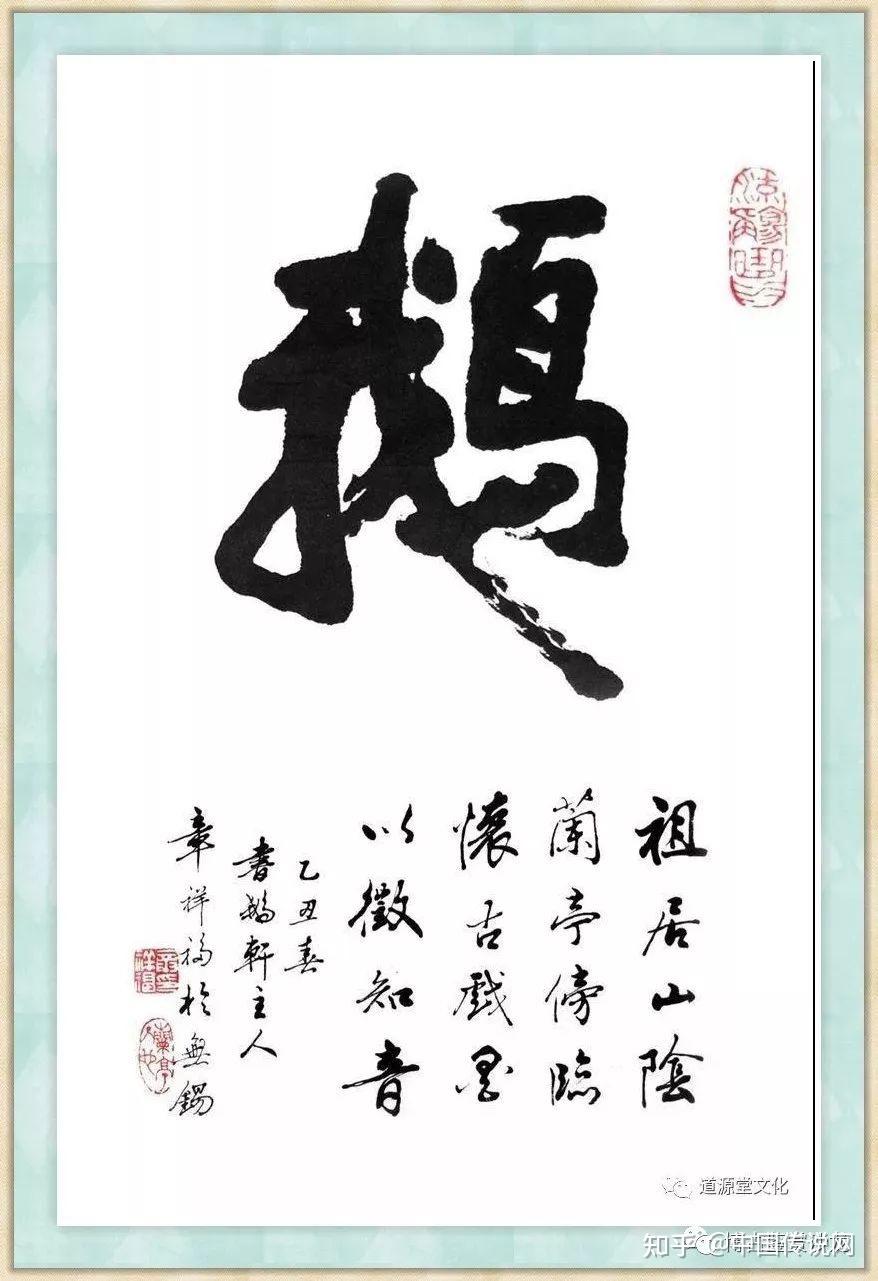 鵝
祖居山陰
蘭亭傍臨
懷古戲墨
以徵知音
乙丑春
書鵝軒主人
章祥福於無錫
蘭亭
道源堂文化
知乎 @中国传说网